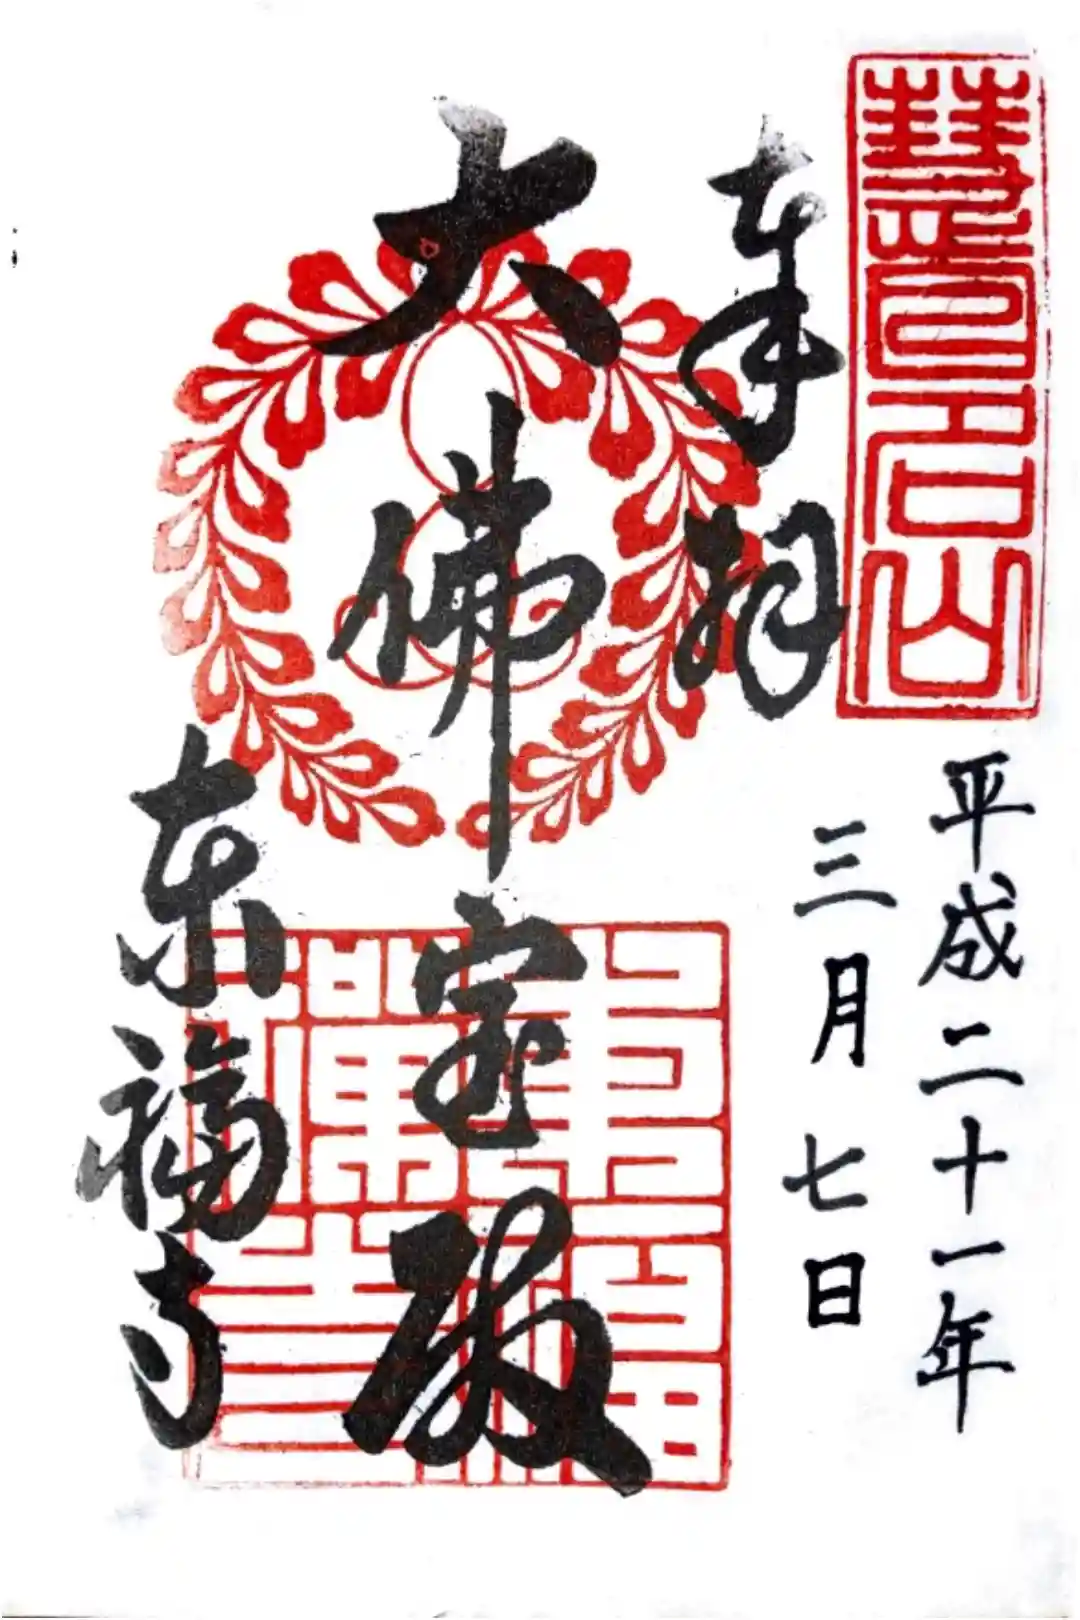 慧日山
奉拝
平成二十一年
三月七日
大佛宝殿
東福寺
東福禅寺